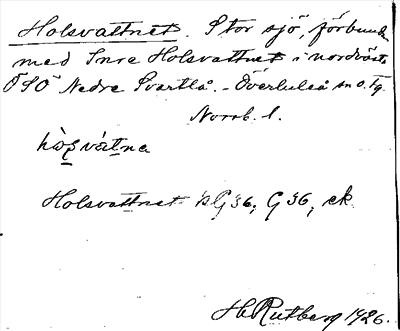 Holsvattnet. Stor sjö, förbund.
med Inre Holsvattnet i nordväst.
ÖSÖ Nedre Svartlå. - Överluleå sn o. tg.
Norrb. l.
hò̱lsvátna
Holsvattnet kG 36; G 36, ek.
H. Rutberg 1926.